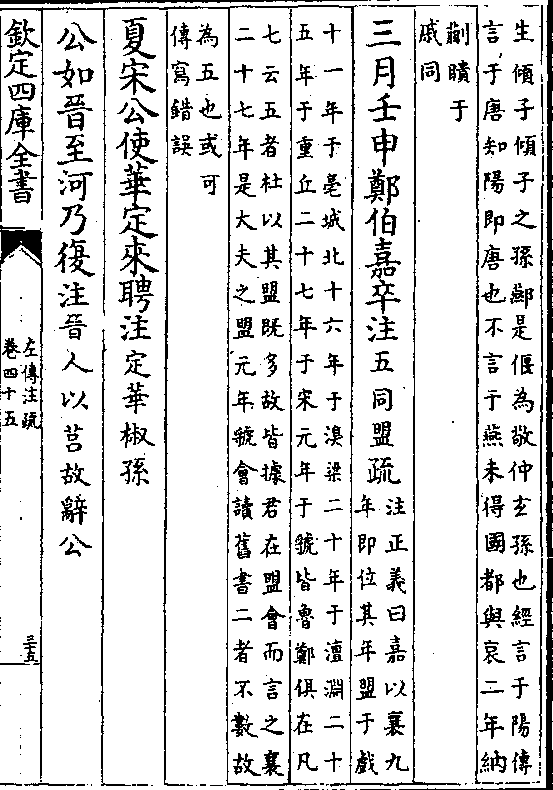 生傾子傾子之孫鄺是偃為敬仲玄孫也經言于陽傳
言于唐知陽即唐也不言于燕未得國都與哀二年納
蒯聵于
戚同
三月壬申鄭伯嘉卒注五同盟疏
注正義曰嘉以襄九
年即位其年盟于戲
十一年于亳城北十六年于溴梁二十年于澶淵二十
五年于重丘二十七年于宋元年于虢皆魯鄭俱在凡
七云五者杜以其盟既多故皆據君在盟會而言之襄
二十七年是大夫之盟元年虢會讀舊書二者不數故
為五也或可
傳寫錯誤
夏宋公使華定來聘注定華椒孫
公如晉至河乃復注晉人以莒故辭公
欽定四庫全書
左傳注疏
卷四十五
三五